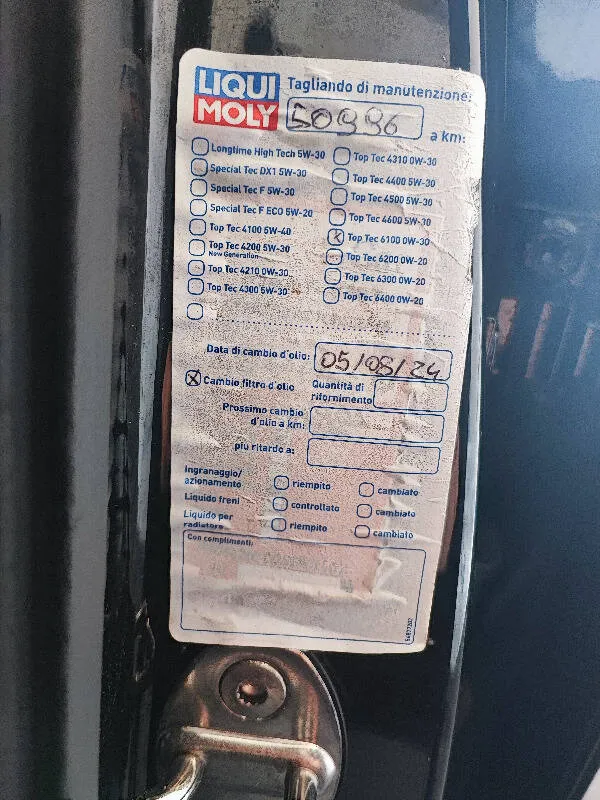 LIQUI
MOLY
Tagliando di manutenzione:
50996 a km:
Longtime High Tech 5W-30
Special Tec DX1 5W-30
Special Tec F 5W-30
Special Tec F ECO 5W-20
Top Tec 4100 5W-40
Top Tec 4200 5W-30
New Generation
Top Tec 4210 0W-30
Top Tec 4300 5W-30
Top Tec 4310 0W-30
Top Tec 4400 5W-30
Top Tec 4500 5W-30
Top Tec 4600 5W-30
X Top Tec 6100 0W-30
Top Tec 6200 0W-20
Top Tec 6300 0W-20
Top Tec 6400 0W-20
Data di cambio d'olio: 05/08/24
X Cambio filtro d'olio
Quantità di
rifornimento
Prossimo cambio
d'olio a km:
più ritardo a:
Ingranaggio/
azionamento riempito cambiato
Liquido freni controllato cambiato
Liquido per
radiatore riempito cambiato
Con complimenti: